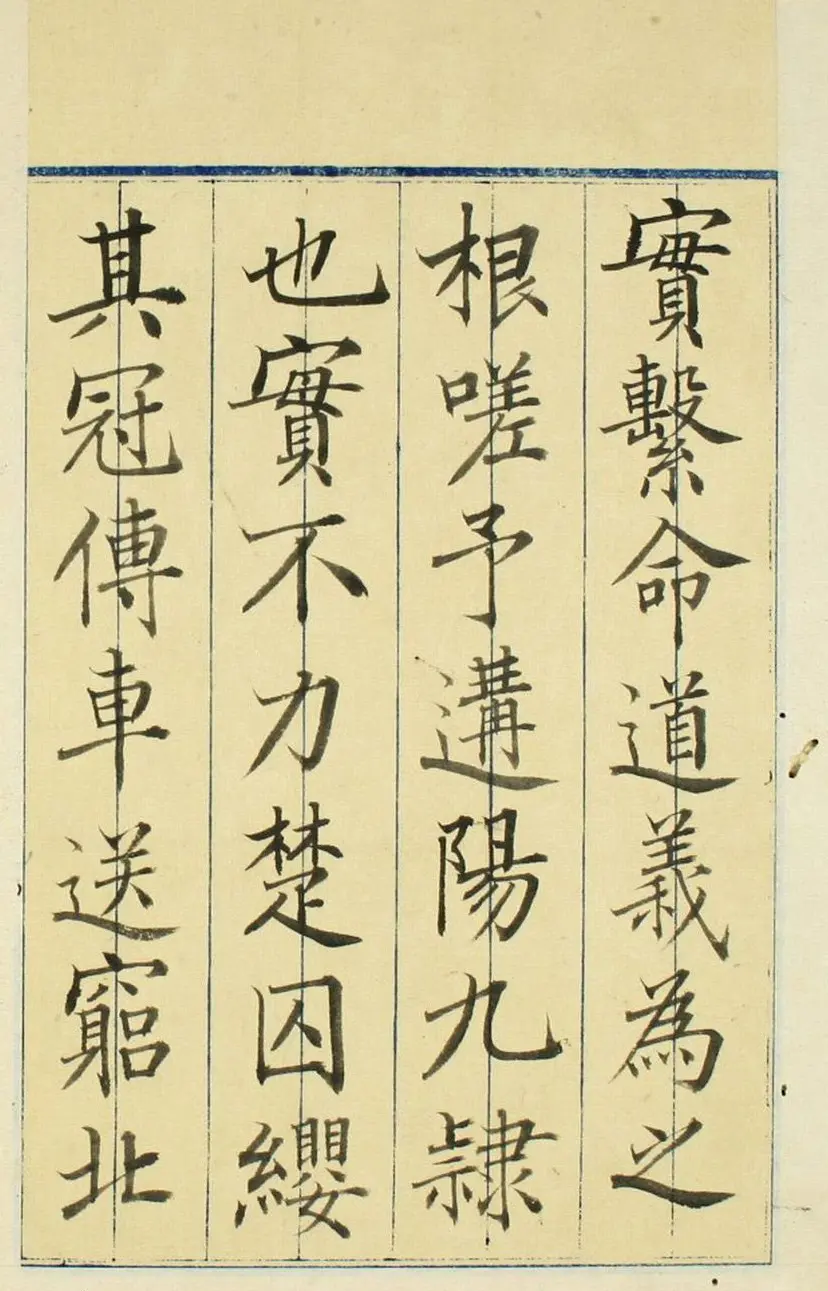 實繫命道義為之
根嗟予遘陽九隷
也實不力楚囚纓
其冠傳車送窮北